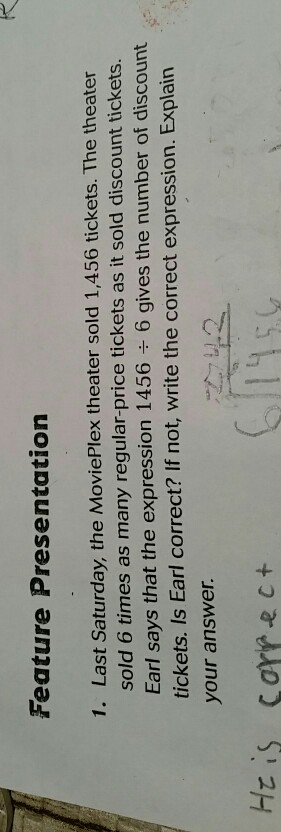 Feature Presentation
1. Last Saturday, the MoviePlex theater sold 1,456 tickets. The theater
sold 6 times as many regular-price tickets as it sold discount tickets.
Earl says that the expression 1456 ÷ 6 gives the number of discount
tickets. Is Earl correct? If not, write the correct expression. Explain
your answer.
242
6 1456
He is correct